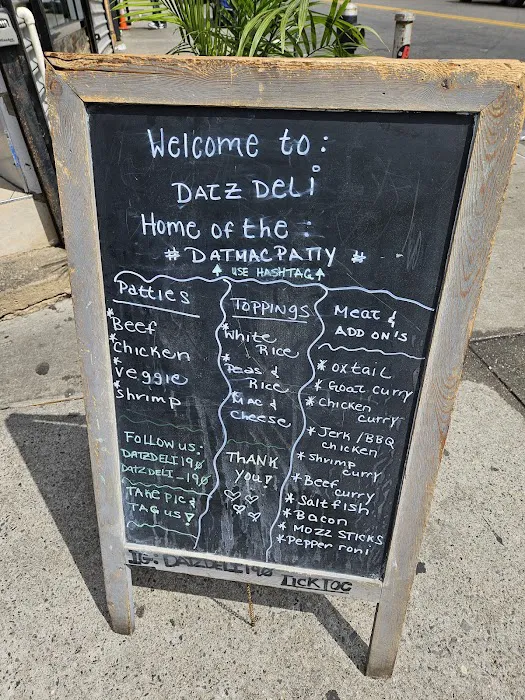 Welcome to:
DATZ DELI
Home of the:
# DATMACPATTY #
↑ USE HASHTAG ↑
Patties
*Beef
*Chicken
*Veggie
*Shrimp
FOLLOW US:
DATZDELI190
DATZDELI_190
TAKE PIC &
TAG US!
TOPPINGS
*White
Rice
*Peas &
Rice
Mac &
Cheese
THANK
YOU!
♡♡
♡♡
Meat &
ADD ON'S
* oxtail
* Goat curry
* Chicken
curry
*Jerk/BBQ
chicken
*Shrimp
curry
*Beef
curry
*Saltfish
*Bacon
*MOZZ STICKS
*Pepper roni
IG: DATZDELI190
TICKTOC